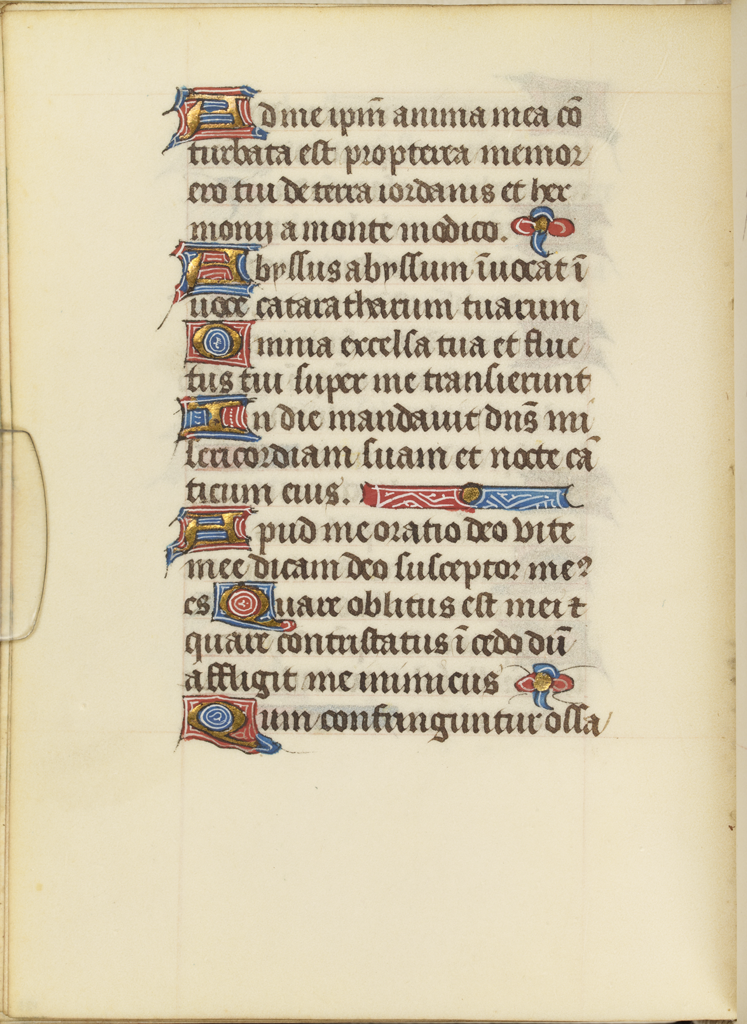 Ad me ipm̄ anima mea cō
turbata est propterea memor
ero tui de terra iordanis et her
monij a monte modico.
Abyssus abyssum īuocat ī
uoce catharatharum tuarum
Omnia excelsa tua et fluc
tus tui super me transierunt
In die mandauit dn̄s mi
sericordiam suam et nocte cā
ticum eius.
Apud me oratio deo vite
mee dicam deo susceptor me⁹
es Quare oblitus est mei ⁊
quare contristatus īcedo dū
affligit me inimicus
Cum confringuntur ossa